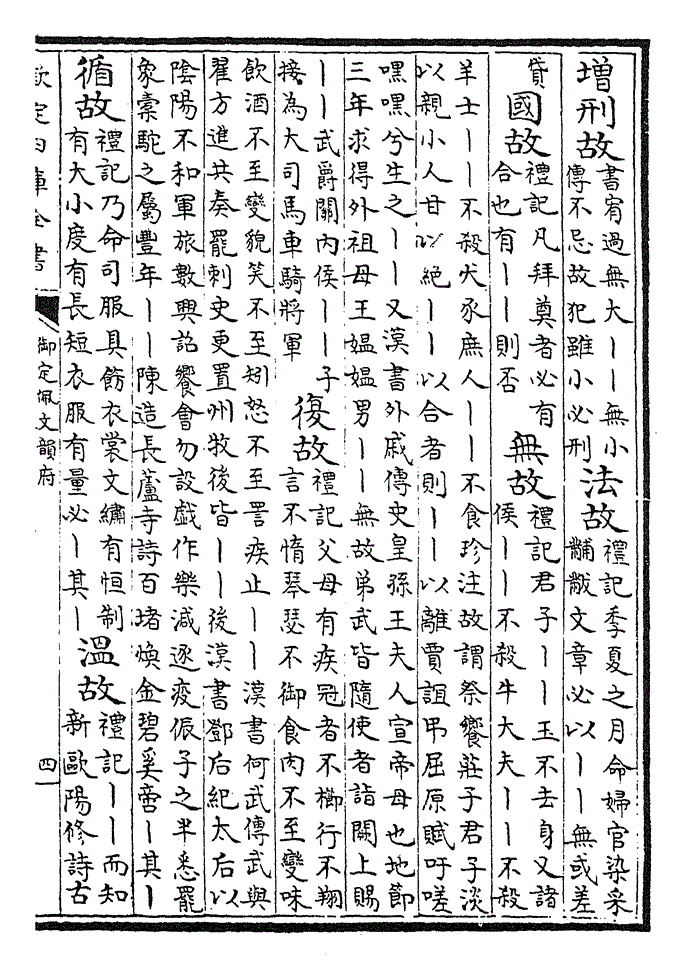 增刑故
書宥過無大丨丨無小
傳不忌故犯雖小必刑
法故
禮記季夏之月命婦官染采
黼黻文章必以丨丨無或差
貸
國故
禮記凡拜奠者必有
合也有丨丨則否
無故
禮記君子丨丨玉不去身又諸
侯丨丨不殺牛大夫丨丨不殺
羊士丨丨不殺犬豕庶人丨丨不食珍注故謂祭饗莊子君子淡
以親小人甘以絕丨丨以合者則丨丨以離賈誼弔屈原賦吁嗟
嘿嘿兮生之丨丨又漢書外戚傳史皇孫王夫人宣帝母也地節
三年求得外祖母王媼媼男丨丨無故弟武皆隨使者詣闕上賜
丨丨武爵關内侯丨丨子
接為大司馬車騎將軍
復故
禮記父母有疾冠者不櫛行不翔
言不惰琴瑟不御食肉不至變味
飲酒不至變貌笑不至矧怒不至詈疾止丨丨漢書何武傳武與
翟方進共奏罷刺史更置州牧後皆丨丨後漢書鄧后紀太后以
陰陽不和軍旅數興詔饗會勿設戲作樂減逐疫侲子之半悉罷
象橐駝之屬豐年丨丨陳造長蘆寺詩百堵煥金碧奚啻丨其丨
循故
禮記乃命司服具飭衣裳文繡有恒制
有大小度有長短衣服有量必丨其丨
溫故
禮記丨丨而知
新歐陽修詩古
欽定四庫全書
御定佩文韻府
四